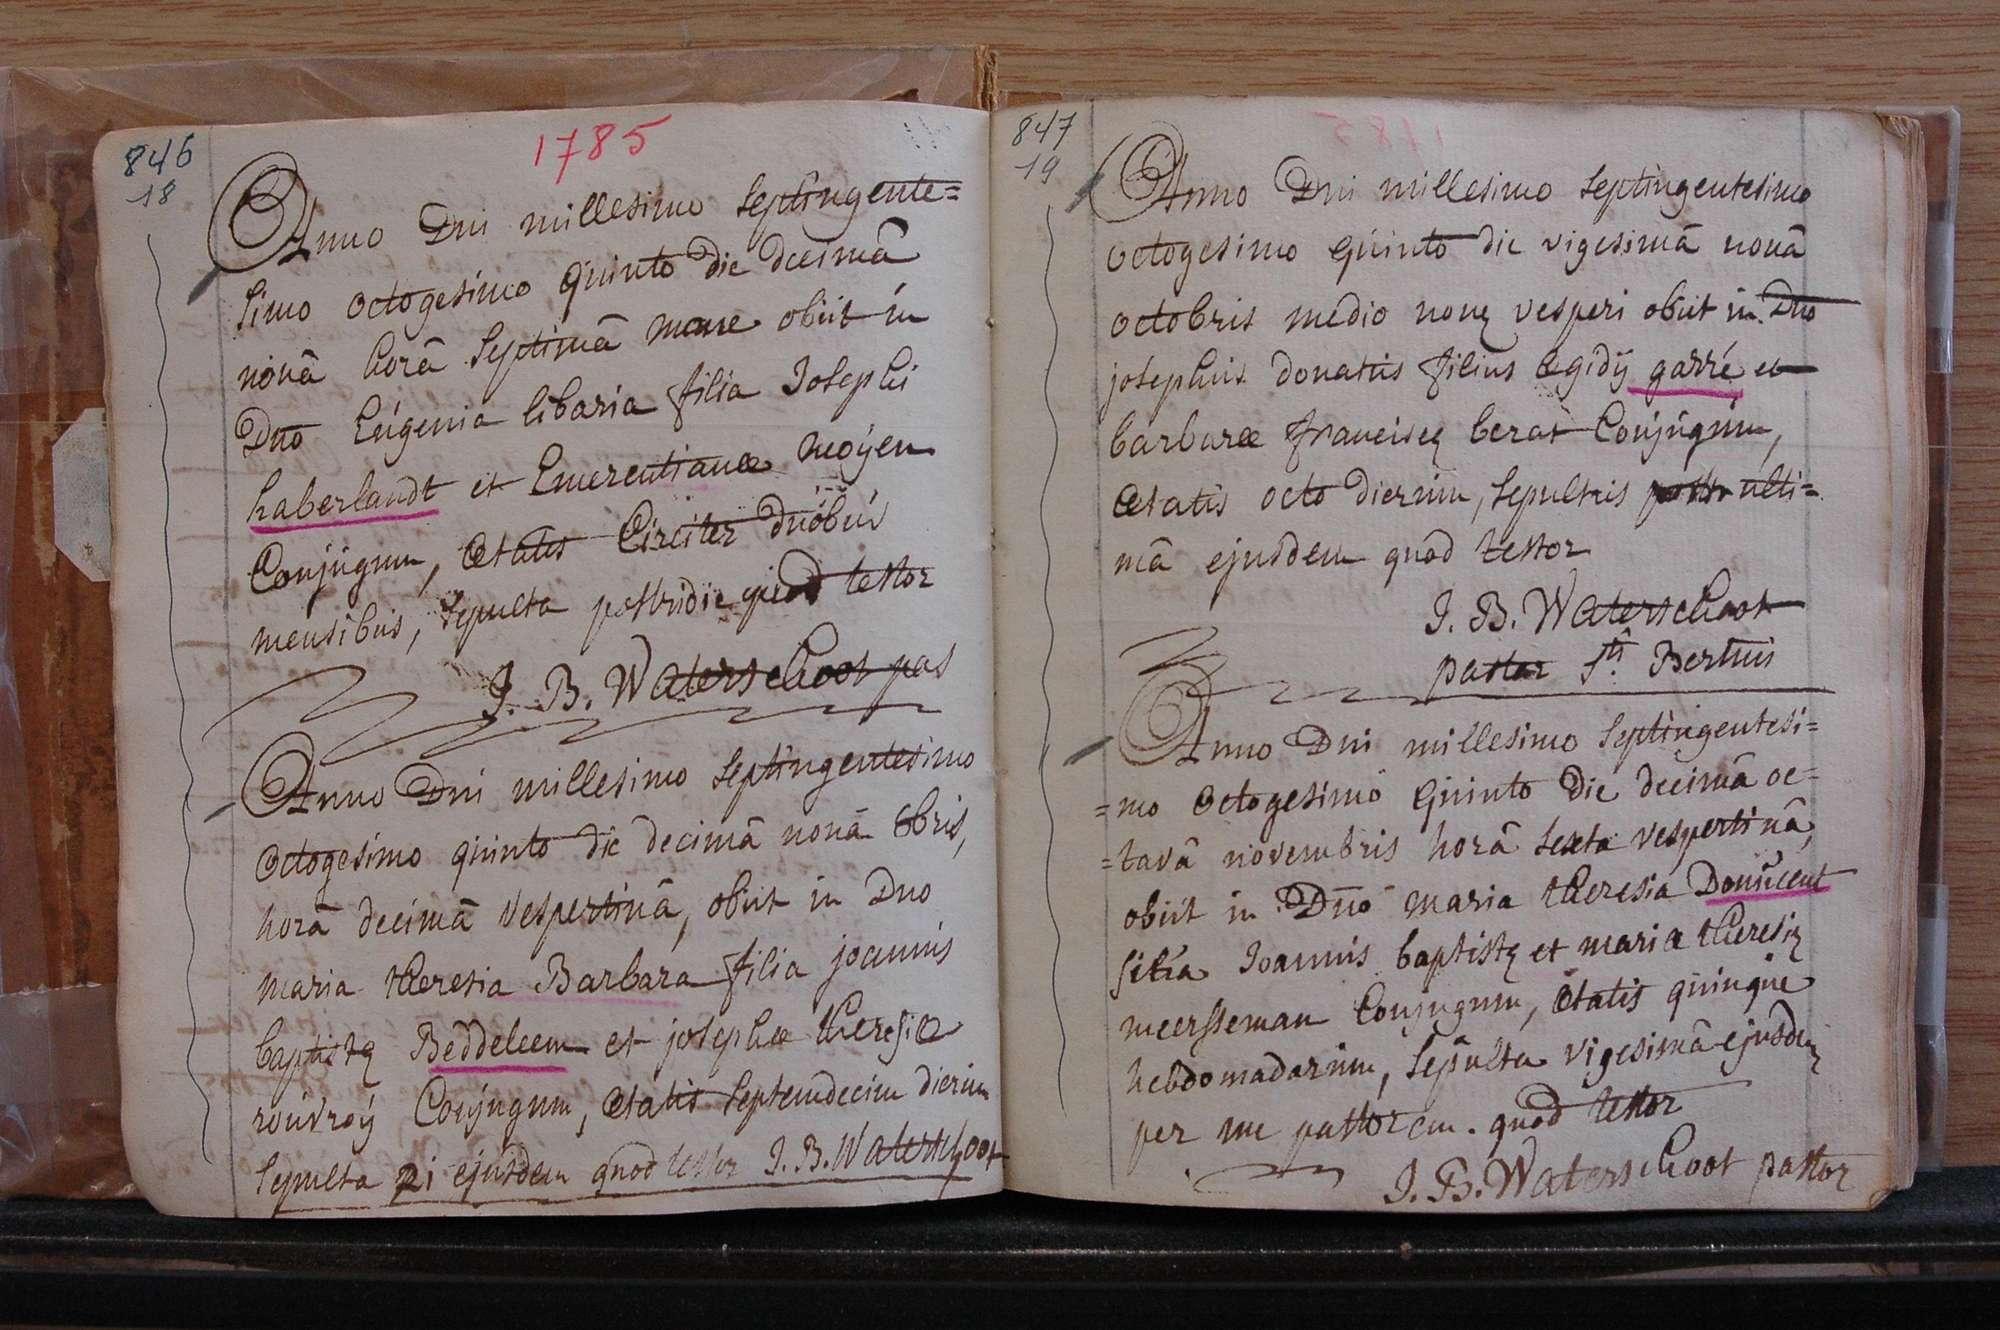 846
18
1785
Anno Dni millesimo septingente=
simo octogesimo quinto die decimâ
nonâ horâ septimâ mane obiit in
Dno Eugenia libaria filia Josephi
haberlandt et Emerentianæ moyen
Conjugum, ætatis Circiter duobus
mensibus, sepulta postridie quod testor
J. B. Waterschoot pas
Anno Dni millesimo septingentesimo
octogesimo quinto die decimâ nonâ 8bris,
horâ decimâ vespertinâ, obiit in Dno
maria theresia Barbara filia joannis
baptistę Beddeleem et josephæ theresiæ
rouvroÿ Conjugum, ætatis septemdecim dierum
sepulta 21 ejusdem quod testor J. B. Waterschoot
847
19
Anno Dni millesimo septingentesimo
octogesimo quinto die vigesimâ nonâ
octobris medio nonę vesperi obiit in Dno
josephus donatus filius ægidÿ garré et
barbaræ franciscę berat Conjugum,
ætatis octo dierum, sepultus ulti=
mâ ejusdem quod testor
J. B. Waterschoot
pastor Sti Bertini
Anno Dni millesimo septingentesi=
=mo octogesimo quinto die decimâ oc=
=tavâ novembris horâ sexta vespertinâ,
obiit in Dno maria theresia Donücent
filia Joannis baptistę et mariæ theresię
meersseman Conjugum, ætatis quinque
hebdomadarum, sepulta vigesimâ ejusdem
per me pastorem. quod testor
J. B. Waterschoot pastor